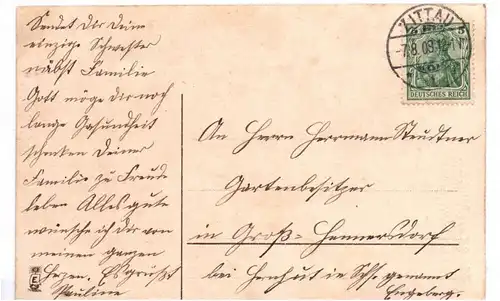 Sendet dir Deine
einzige Schwester
näbst Familie
Gott möge dir noch
lange Gesundheit
schenken Deiner
Familie zu Freude
leben Alles gute
wünsche ich dir von
meinen ganzen
Herzen. Es grüßt
Pauline
ZITTAU
-7.8.08.
5
DEUTSCHES REICH
An Herrn Herrmann Steudtner
Gartenbesitzer
in Groß-Hennersdorf
bei Herrnhut in Sachs. genannt
Engeberg.